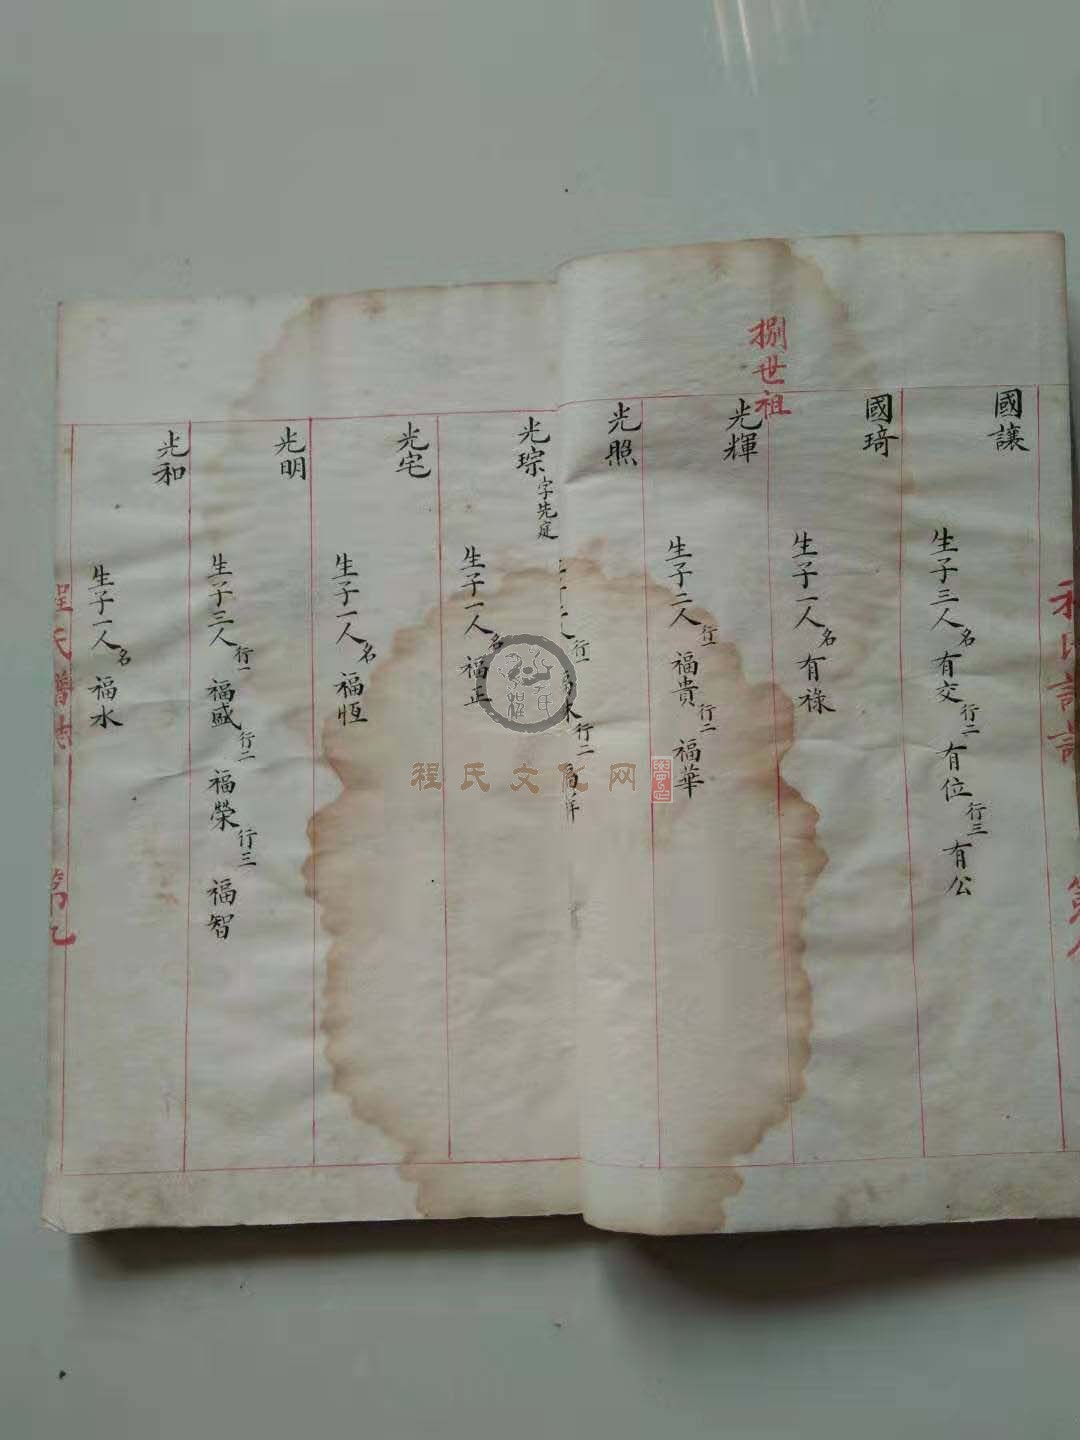 國讓
生子三人名有交行二有位行三有公
國琦
生子一人名有祿
捌世祖
光輝
生子二人行一福貴行二福華
光照
行一
行二
光琮字光庭
生子一人名福正
光宅
生子一人名福恆
光明
生子三人行一福盛行二福榮行三福智
光和
生子一人名福水
程氏譜
第九
程氏文化网